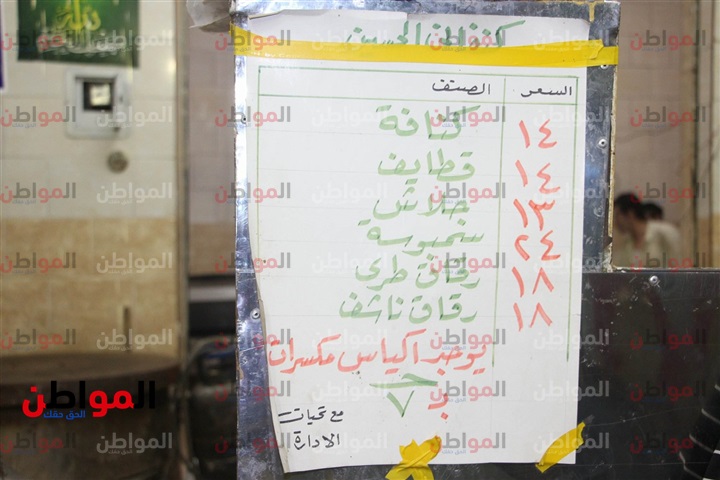 كنفاني الحسين
السعر الصنف
كنافة ١٤
قطايف ١٤
جلاش ١٣
سنمبوسة ٢٤
رقاق طرى ١٨
رقاق ناشف ١٨
يوجد اكياس مكسرات
بـ ٧
مع تحيات
الادارة
المواطن
الحق حقك